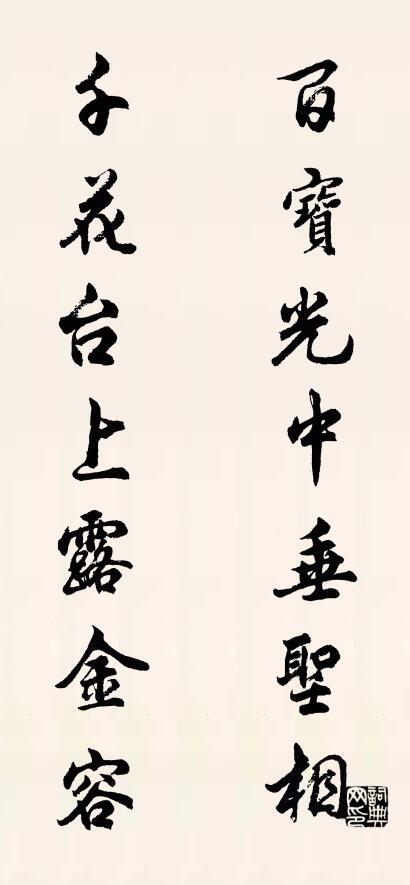 百寶光中垂聖相
千花台上露金容
詞典网印